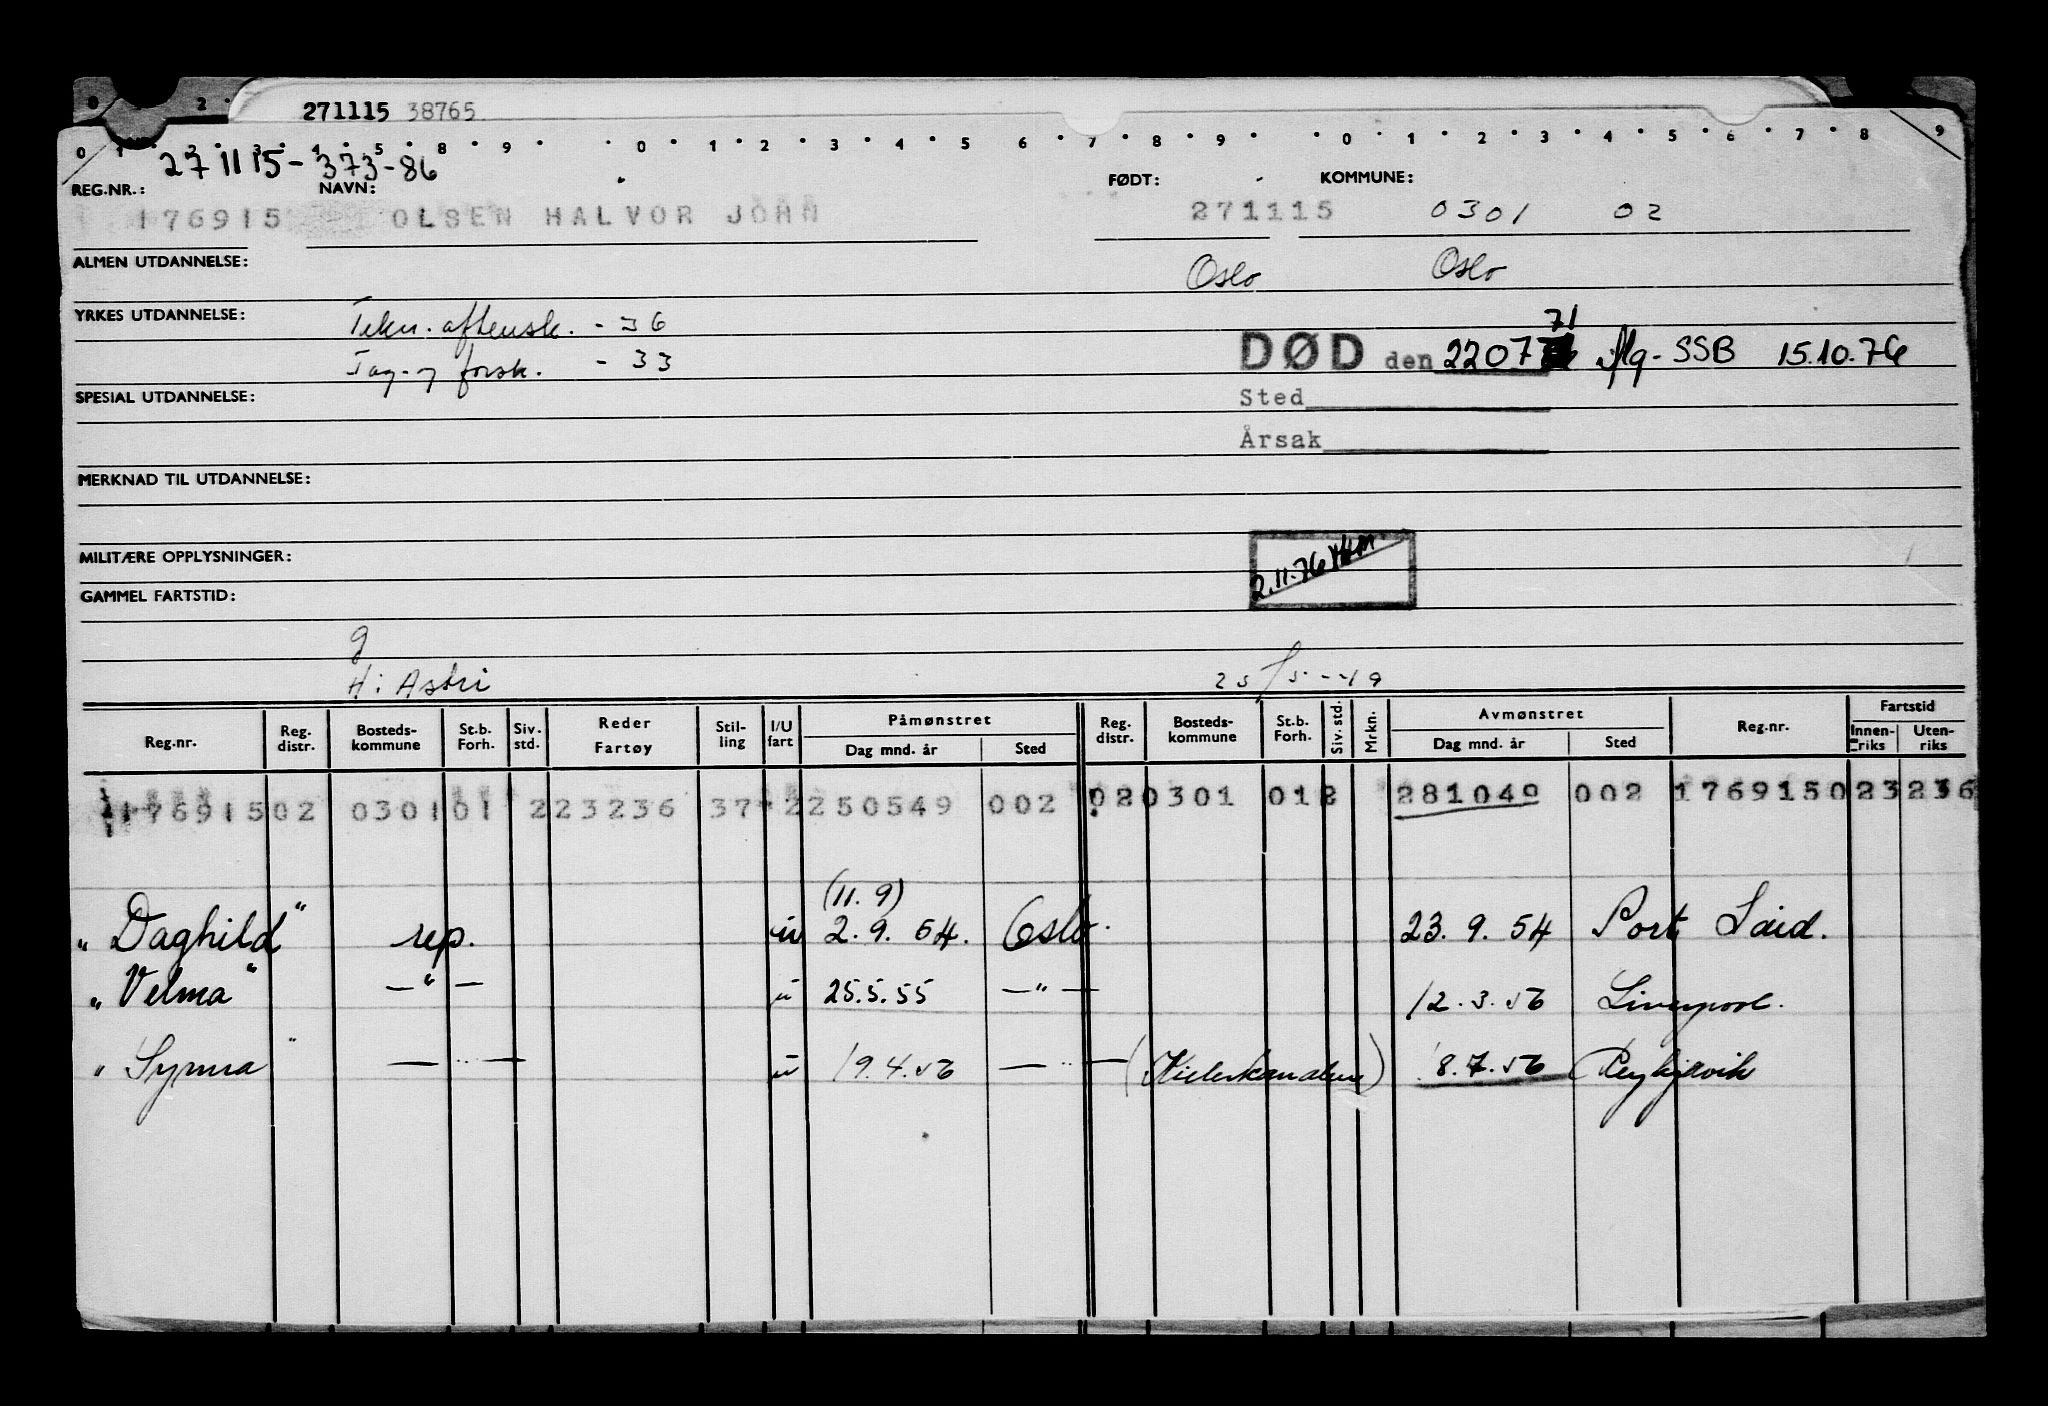 271115 38765
0 1 2 3 4 5 8 9 0 1 2 3 4 5 6 7 8 9 0 1 2 3 4 5 6 7 8 9
27 11 15 - 373-86
REG.NR.: NAVN: FØDT: KOMMUNE:
176915 OLSEN HALVOR JOHN 271115 0301 02
ALMEN UTDANNELSE: Oslo Oslo
YRKES UTDANNELSE: Tekn. aftensk. - 36
71
DØD den 2207 iflg. SSB 15.10.76
Fag- forsk. - 33
SPESIAL UTDANNELSE: Sted
Årsak
MERKNAD TIL UTDANNELSE:
MILITÆRE OPPLYSNINGER: 2.11.76
GAMMEL FARTSTID:
g
H: Astri 25/5-49
Reg.nr. Reg. distr. Bosteds-kommune St.b. Forh. Siv. std. Reder Fartøy Stil-ling I/U fart Påmønstret Dag mnd. år Sted Reg. distr. Bosteds-kommune St.b. Forh. Siv. std. Mrkn. Avmønstret Dag mnd. år Sted Reg.nr. Fartstid Innen-riks Uten-riks
176915 02 0301 01 2 23236 37 2 250549 002 02 0301 01 2 281049 002 176915 023 236
(11.9)
"Daghild" rep. u 2.9.54. Oslo. 23.9.54 Port Said.
"Velma" —"— u 25.5.55 —"— 12.3.56 Liverpool.
"Syrma" —"— u 19.4.56 —"— (Kielerkanalen) 18.7.56 Reykjavik